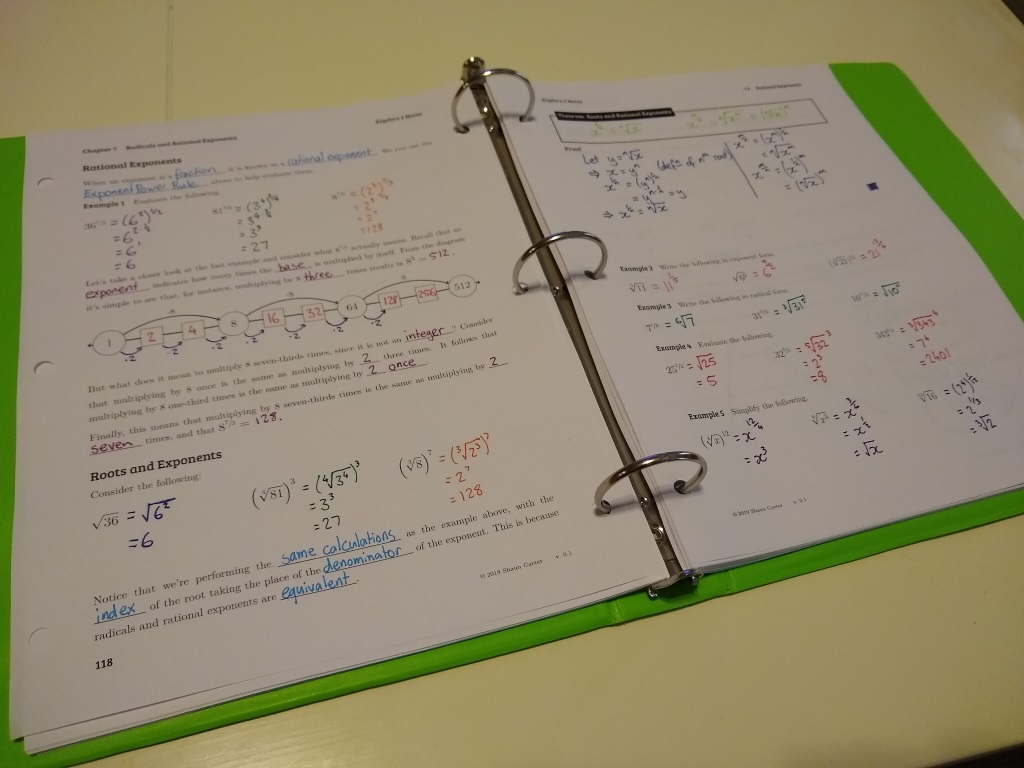 Chapter 7 Radicals and Rational Exponents Algebra 2 Notes
Rational Exponents
When an exponent is a fraction, it is known as a rational exponent. We can use the
Exponent Power Rule above to help evaluate them.
Example 1 Evaluate the following.
36^{1/2} = (6²)^{1/2} 81^{3/4} = (3⁴)^{3/4} 8^{7/3} = (2³)^{7/3}
= 6
= 6
= 27
= 2⁷
= 128
Let's take a closer look at the last example and consider what 8^{7/3} actually means. Recall that an
exponent indicates how many times the base is multiplied by itself. From the diagram
it's simple to see that, for instance, multiplying by 8 three times results in 8³ = 512.
·8 ·8 ·8
1 2 4 8 16 32 64 128 256 512
·2 ·2 ·2 ·2 ·2 ·2 ·2
But what does it mean to multiply 8 seven-thirds times, since it is not an integer? Consider
that multiplying by 8 once is the same as multiplying by 2 three times. It follows that
multiplying by 8 one-third times is the same as multiplying by 2 once.
Finally, this means that multiplying by 8 seven-thirds times is the same as multiplying by 2
seven times, and that 8^{7/3} = 128.
Roots and Exponents
Consider the following:
√36 = √6² (∜81)³ = (∜3⁴)³ (∛8)⁷ = (∛2³)⁷
= 6 = 3³ = 2⁷
= 27 = 128
Notice that we're performing the same calculations as the example above, with the
index of the root taking the place of the denominator of the exponent. This is because
radicals and rational exponents are equivalent.
© 2019 Shaun Carter v. 0.1
118
Algebra 2 Notes 7.3 Rational Exponents
Theorem: Roots and Rational Exponents
Proof
Let y = ⁿ√x (defn of nth root)
⇒ x = yⁿ
= y
⇒ x^{1/n} = ⁿ√x
Example 2 Write the following in exponent form.
Example 3 Write the following in radical form.
Example 4 Evaluate the following.
= √25 = ⁵√32³ = ∛343⁴
= 5 = 2³ = 7⁴
= 8 = 2401
Example 5 Simplify the following.
(∜x)¹² = x^{12/4} ∜16 = (2⁴)^{1/12}
= x³ = √x = 2^{1/3}
= ∛2
© 2019 Shaun Carter v. 0.1